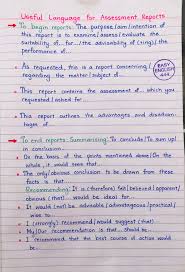 Useful Language for Assessment Reports
→ To begin reports: The purpose/aim/intention of
this report is to examine/assess/evaluate the
suitability of.. for.../the advisability of (-ing)/the
performance of...
→ As requested, this is a report concerning/
regarding the matter/subject of...
EASY ENGLISH 444
→ This report contains the assessment of... which you
requested/asked for...
→ This report outlines the advantages and disadvan-
tages of...
→ To end reports: Summarising: To conclude/To sum up/
In conclusion
→ On the basis of the points mentioned above/On the
whole, it would seem that...
→ The only/obvious conclusion to be drawn from these
facts is that...
Recommending: It is (therefore) felt/believed/apparent/
obvious (that)... would be ideal for...
→ It would (not) be advisable/advantageous/practical/
wise to...
→ I (strongly) recommend/would suggest (that)...
→ My/Our recommendation is that... should be...
→ I recommend that the best course of action would
be...